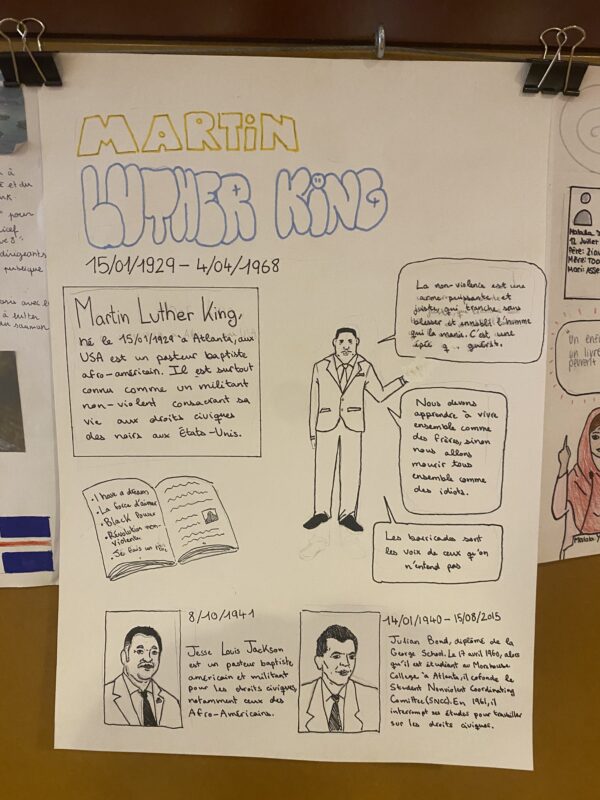 MARTIN
LUTHER KING
15/01/1929 – 4/04/1968
Martin Luther King,
né le 15/01/1929 à Atlanta, aux
USA est un pasteur baptiste
afro-américain. Il est surtout
connu comme un militant
non-violent consacrant sa
vie aux droits civiques
des noirs aux États-Unis.
La non-violence est une
arme puissante et
juste, qui tranche sans
blesser et ennoblit l'homme
qui la manie. C'est une
épée q
Nous devons
apprendre à vivre
ensemble comme
des frères, sinon
nous allons
mourir tous
ensemble comme
des idiots.
Les barricades sont
les voix de ceux qu'on
n'entend pas
• I have a dream
• La force d'aimer
• Black Power
• Révolution non-
violente
• Je fais un rêve
8/10/1941
Jesse Louis Jackson
est un pasteur baptiste
américain et militant
pour les droits civiques,
notamment ceux des
Afro-Américains.
14/01/1940 – 15/08/2015
Julian Bond, diplômé de la
George School. Le 17 avril 1960, alors
qu'il est étudiant au Morehouse
College à Atlanta, il cofonde le
Student Nonviolent Coordinating
Comittee (SNCC). En 1961, il
interrompt ses études pour travailler
sur les droits civiques.
à
et du
pour
dirigeants
12 Juillet
Père:
Mère:
Mari:
Un enf
un livre
peuvent